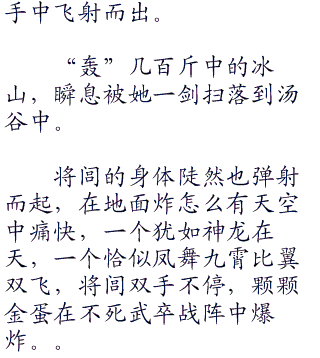 手中飞射而出。
“轰”几百斤中的冰
山，瞬息被她一剑扫落到汤
谷中。
将闾的身体陡然也弹射
而起，在地面炸怎么有天空
中痛快，一个犹如神龙在
天，一个恰似凤舞九霄比翼
双飞，将闾双手不停，颗颗
金蛋在不死武卒战阵中爆
炸。。